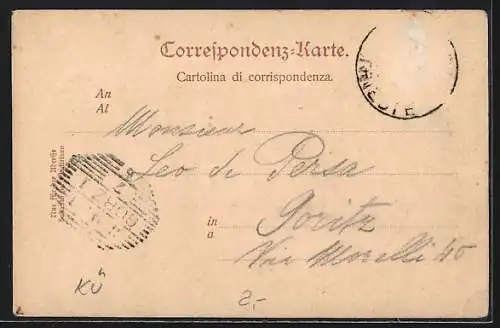 Correspondenz-Karte.
Cartolina di corrispondenza.
An
Al
Monsieur
Leo de Persa
in
a
Goritz
Via Morelli 40
Nur für die Adresse
GÖRZ 1
KÜ
2,-